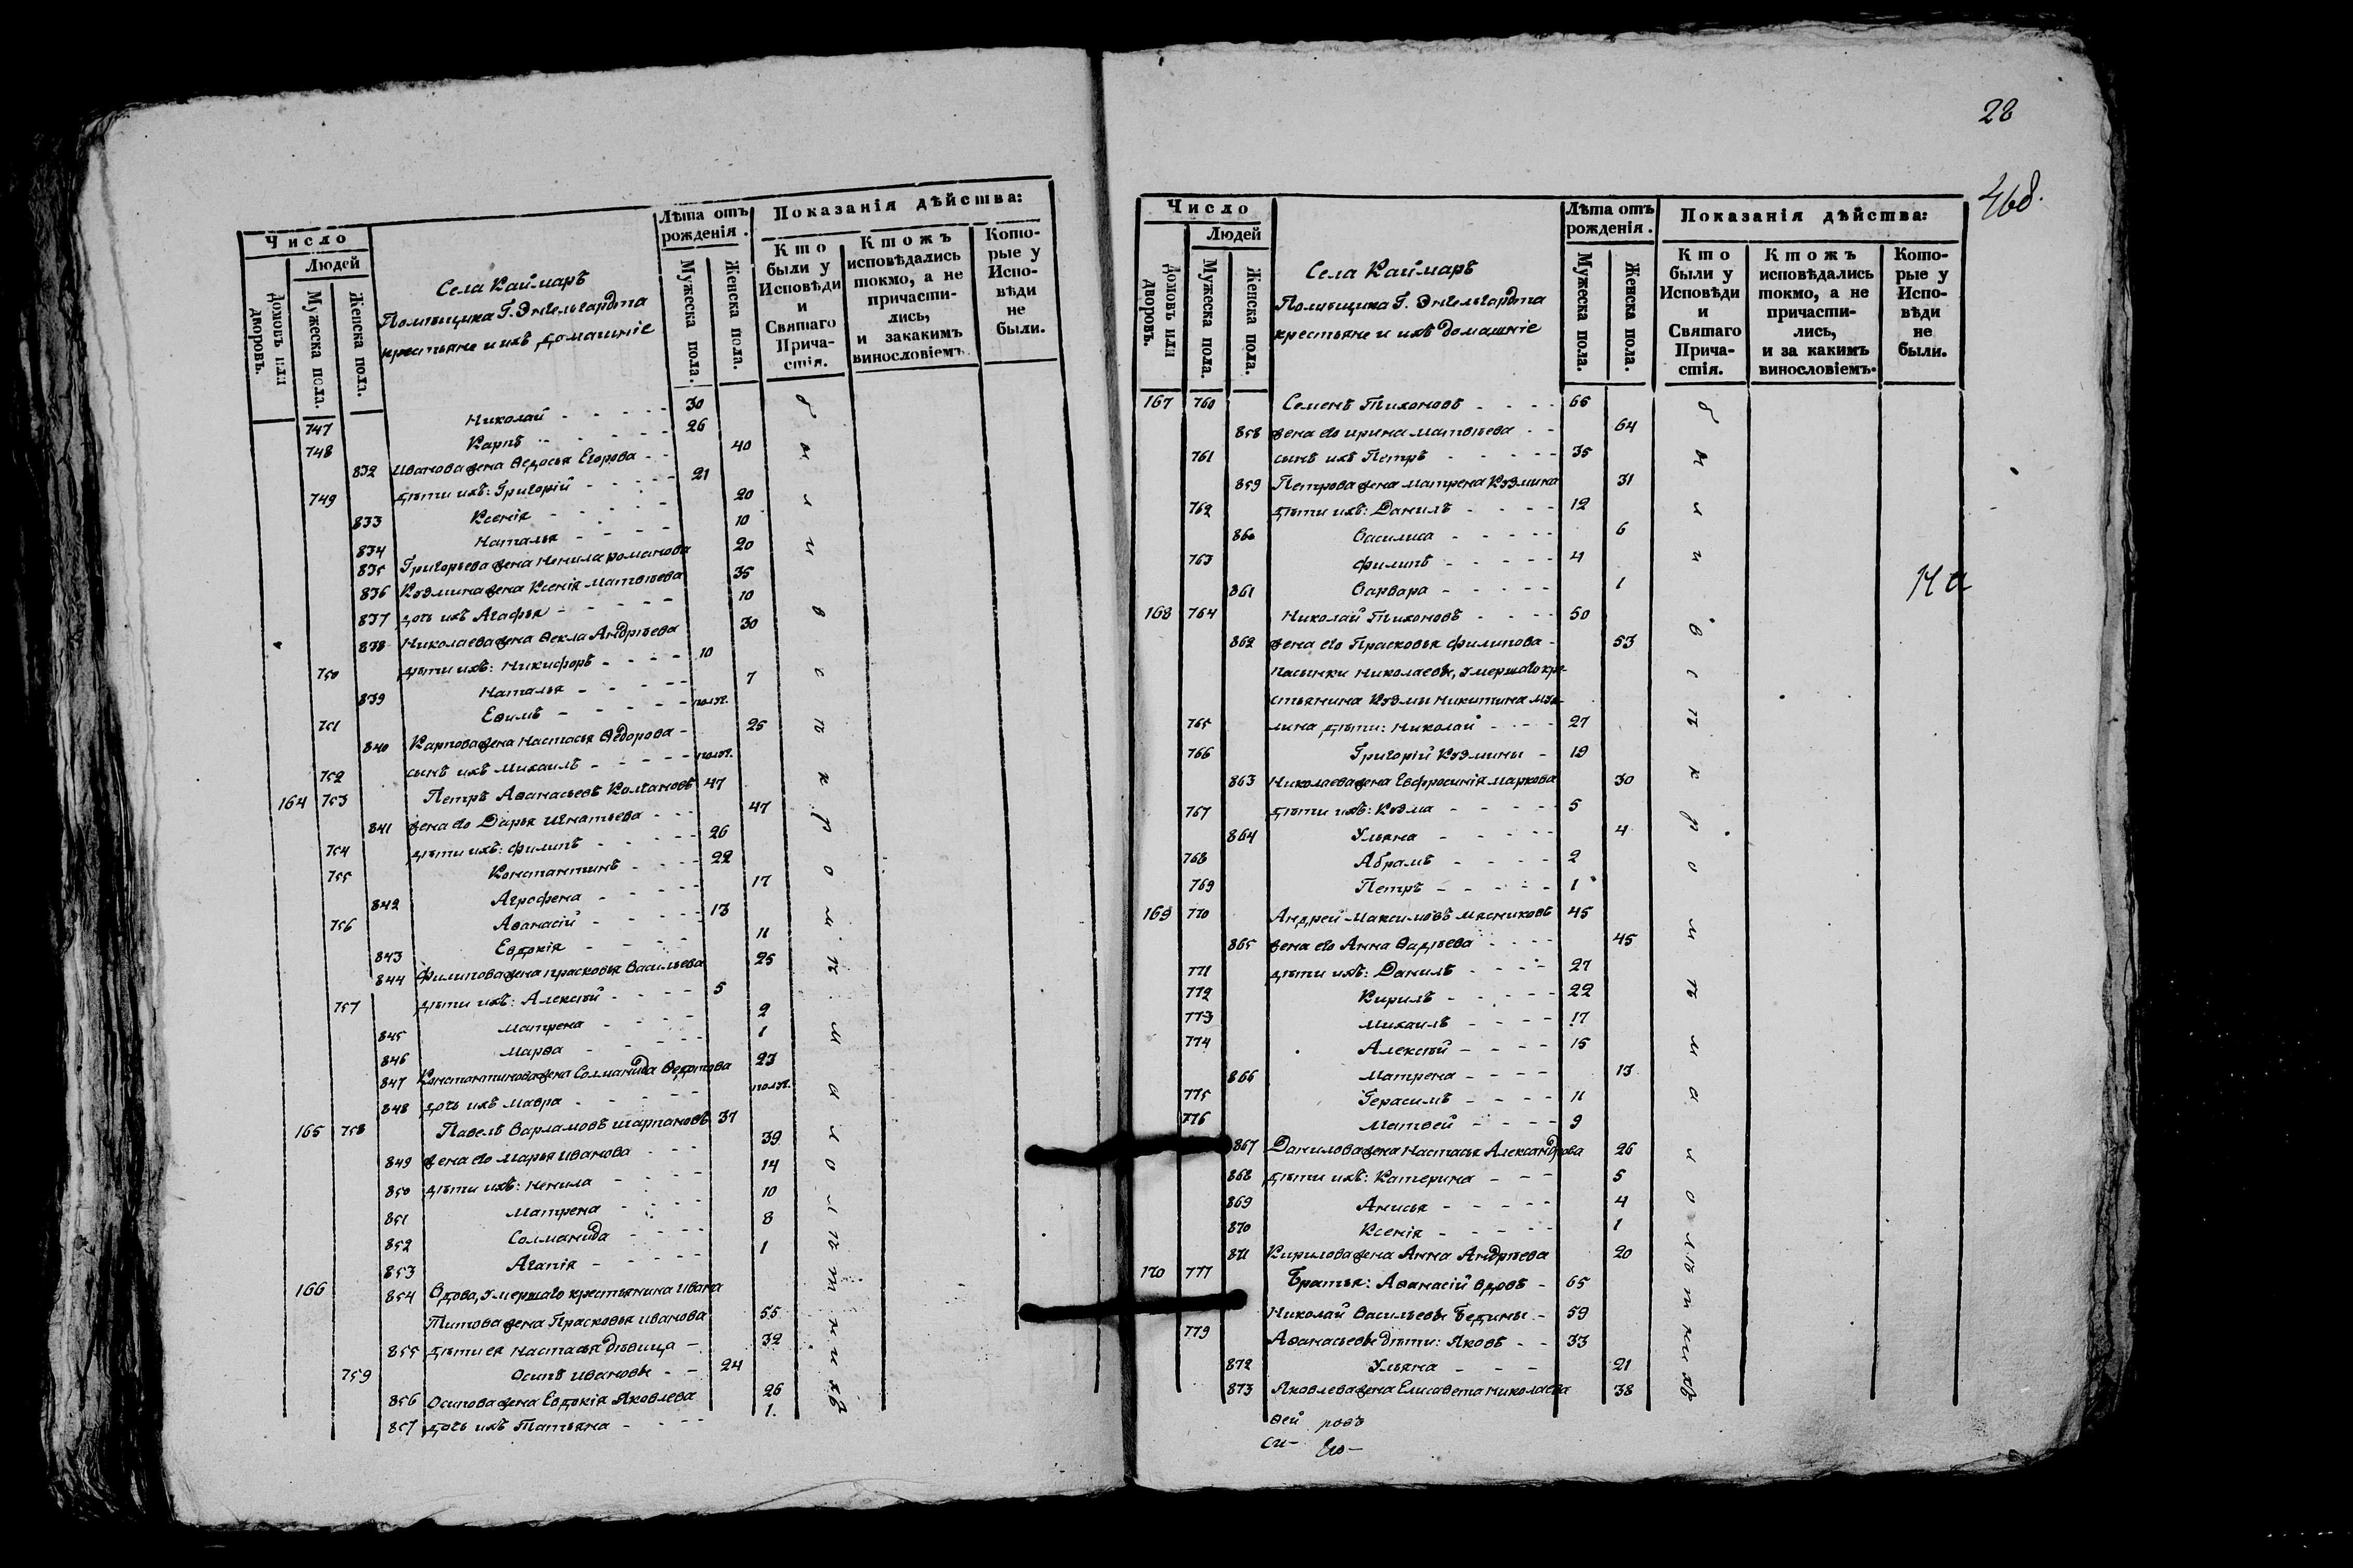 Число
Людей
Домовъ или дворовъ.
Мужеска пола.
Женска пола.
Села Каймаръ
Помѣщика Г. Энгельгардта
крестьяне и ихъ домашніе
Лѣта отъ рожденія.
Мужеска пола.
Женска пола.
Показанія дѣйства:
Кто были у Исповѣди и Святаго Причастія.
Ктожъ исповѣдались токмо, а не причастились, и закакимъ винословіемъ.
Которые у Исповѣди не были.
747 Николай - - - - - 30
748 Карпъ - - - - - 26
832 Иванова жена Ѳедосья Егорова - - 40
749 дѣти ихъ: Григорій - - - - - 21
833 Ксенія - - - - - 20
834 Наталья - - - - 10
835 Григорьева жена Ненила Романова 20
836 Козмина жена Ксенія Матвѣева 35
837 дочь ихъ Агафья - - - - - 10
838 Николаева жена Ѳекла Андрѣева 30
750 дѣти ихъ: Никифоръ - - - - 10
839 Наталья - - - - - 7
751 Евимъ - - - - - полг.
840 Карпова жена Настасья Ѳедорова - 25
752 сынъ ихъ Михаилъ - - - - - полг.
164 753 Петръ Аванасьевъ Колчановъ 47
841 жена его Дарья Игнатьева - - - 47
754 дѣти ихъ: Филипъ - - - - - 26
755 Константинъ - - - - 22
842 Агрофена - - - - 17
756 Аванасій - - - - - 13
843 Евдокія - - - - 11
844 Филипова жена Прасковья Васильева 25
757 дѣти ихъ: Алексѣй - - - - 5
845 Матрена - - - - 2
846 Марѳа - - - - - 1
847 Константинова жена Соломанида Ѳедотова 23
848 дочь ихъ Мавра - - - - - полг.
165 758 Павелъ Варламовъ Шарпановъ 37
849 жена его Марья Иванова - - - 39
850 дѣти ихъ: Ненила - - - - 14
851 Матрена - - - - 10
852 Соломанида - - - - 8
853 Агапія - - - - - 1
166 854 Вдова, умершаго крестьянина Ивана
Титова жена Прасковья Иванова 55
855 дѣти ея Настасья дѣвица - 32
759 Осипъ Ивановы - - 24
856 Осипова жена Евдокія Яковлева 26
857 дочь ихъ Татьяна - - - - 1.
28
468.
Число
Людей
Домовъ или дворовъ.
Мужеска пола.
Женска пола.
Села Каймаръ
Помѣщика Г. Энгельгардта
крестьяне и ихъ домашніе
Лѣта отъ рожденія.
Мужеска пола.
Женска пола.
Показанія дѣйства:
Кто были у Исповѣди и Святаго Причастія.
Ктожъ исповѣдались токмо, а не причастились, и за какимъ винословіемъ.
Которые у Исповѣди не были.
167 760 Семенъ Тихоновъ - - - - 66
858 жена его Ирина Матвѣева - - 64
761 сынъ ихъ Петръ - - - - - 35
859 Петрова жена Матрена Козмина 31
762 дѣти ихъ: Данилъ - - - - 12
860 Василиса - - - - - 6
763 Филипъ - - - - - 4
861 Варвара - - - - - 1
168 764 Николай Тихоновъ - - - - 50
862 жена его Прасковья Филипова - 53
Пасынки Николаевы, умершаго кре-
стьянина Козмы Никитина
765 дѣти: Николай - - - - 27
766 Григорій Козмины - 19
863 Николаева жена Евфросинія Маркова 30
767 дѣти ихъ: Козма - - - - - 5
864 Ульяна - - - - - 4
768 Абрамъ - - - - - 2
769 Петръ - - - - - 1
169 770 Андрей Максимовъ Мясниковъ 45
865 жена его Анна Ѳадѣева - - - - 45
771 дѣти ихъ: Данилъ - - - - 27
772 Кирилъ - - - - - 22
773 Михаилъ - - - - 17
774 Алексѣй - - - - 15
866 Матрена - - - - 13
775 Герасимъ - - - - 11
776 Матвей - - - - 9
867 Данилова жена Настасья Александрова 26
868 дѣти ихъ: Катерина - - - 5
869 Анисья - - - - - 4
870 Ксенія - - - - - 1
871 Кирилова жена Анна Андрѣева 20
170 777 Братья: Аванасій вдовъ - 65
Николай Васильевы Бедины - 59
779 Аванасьевы дѣти: Яковъ - - 33
872 Ульяна - - - 21
873 Яковлева жена Елисавета Николаева 38